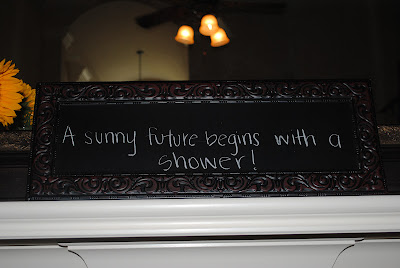 A sunny future begins with a
shower!